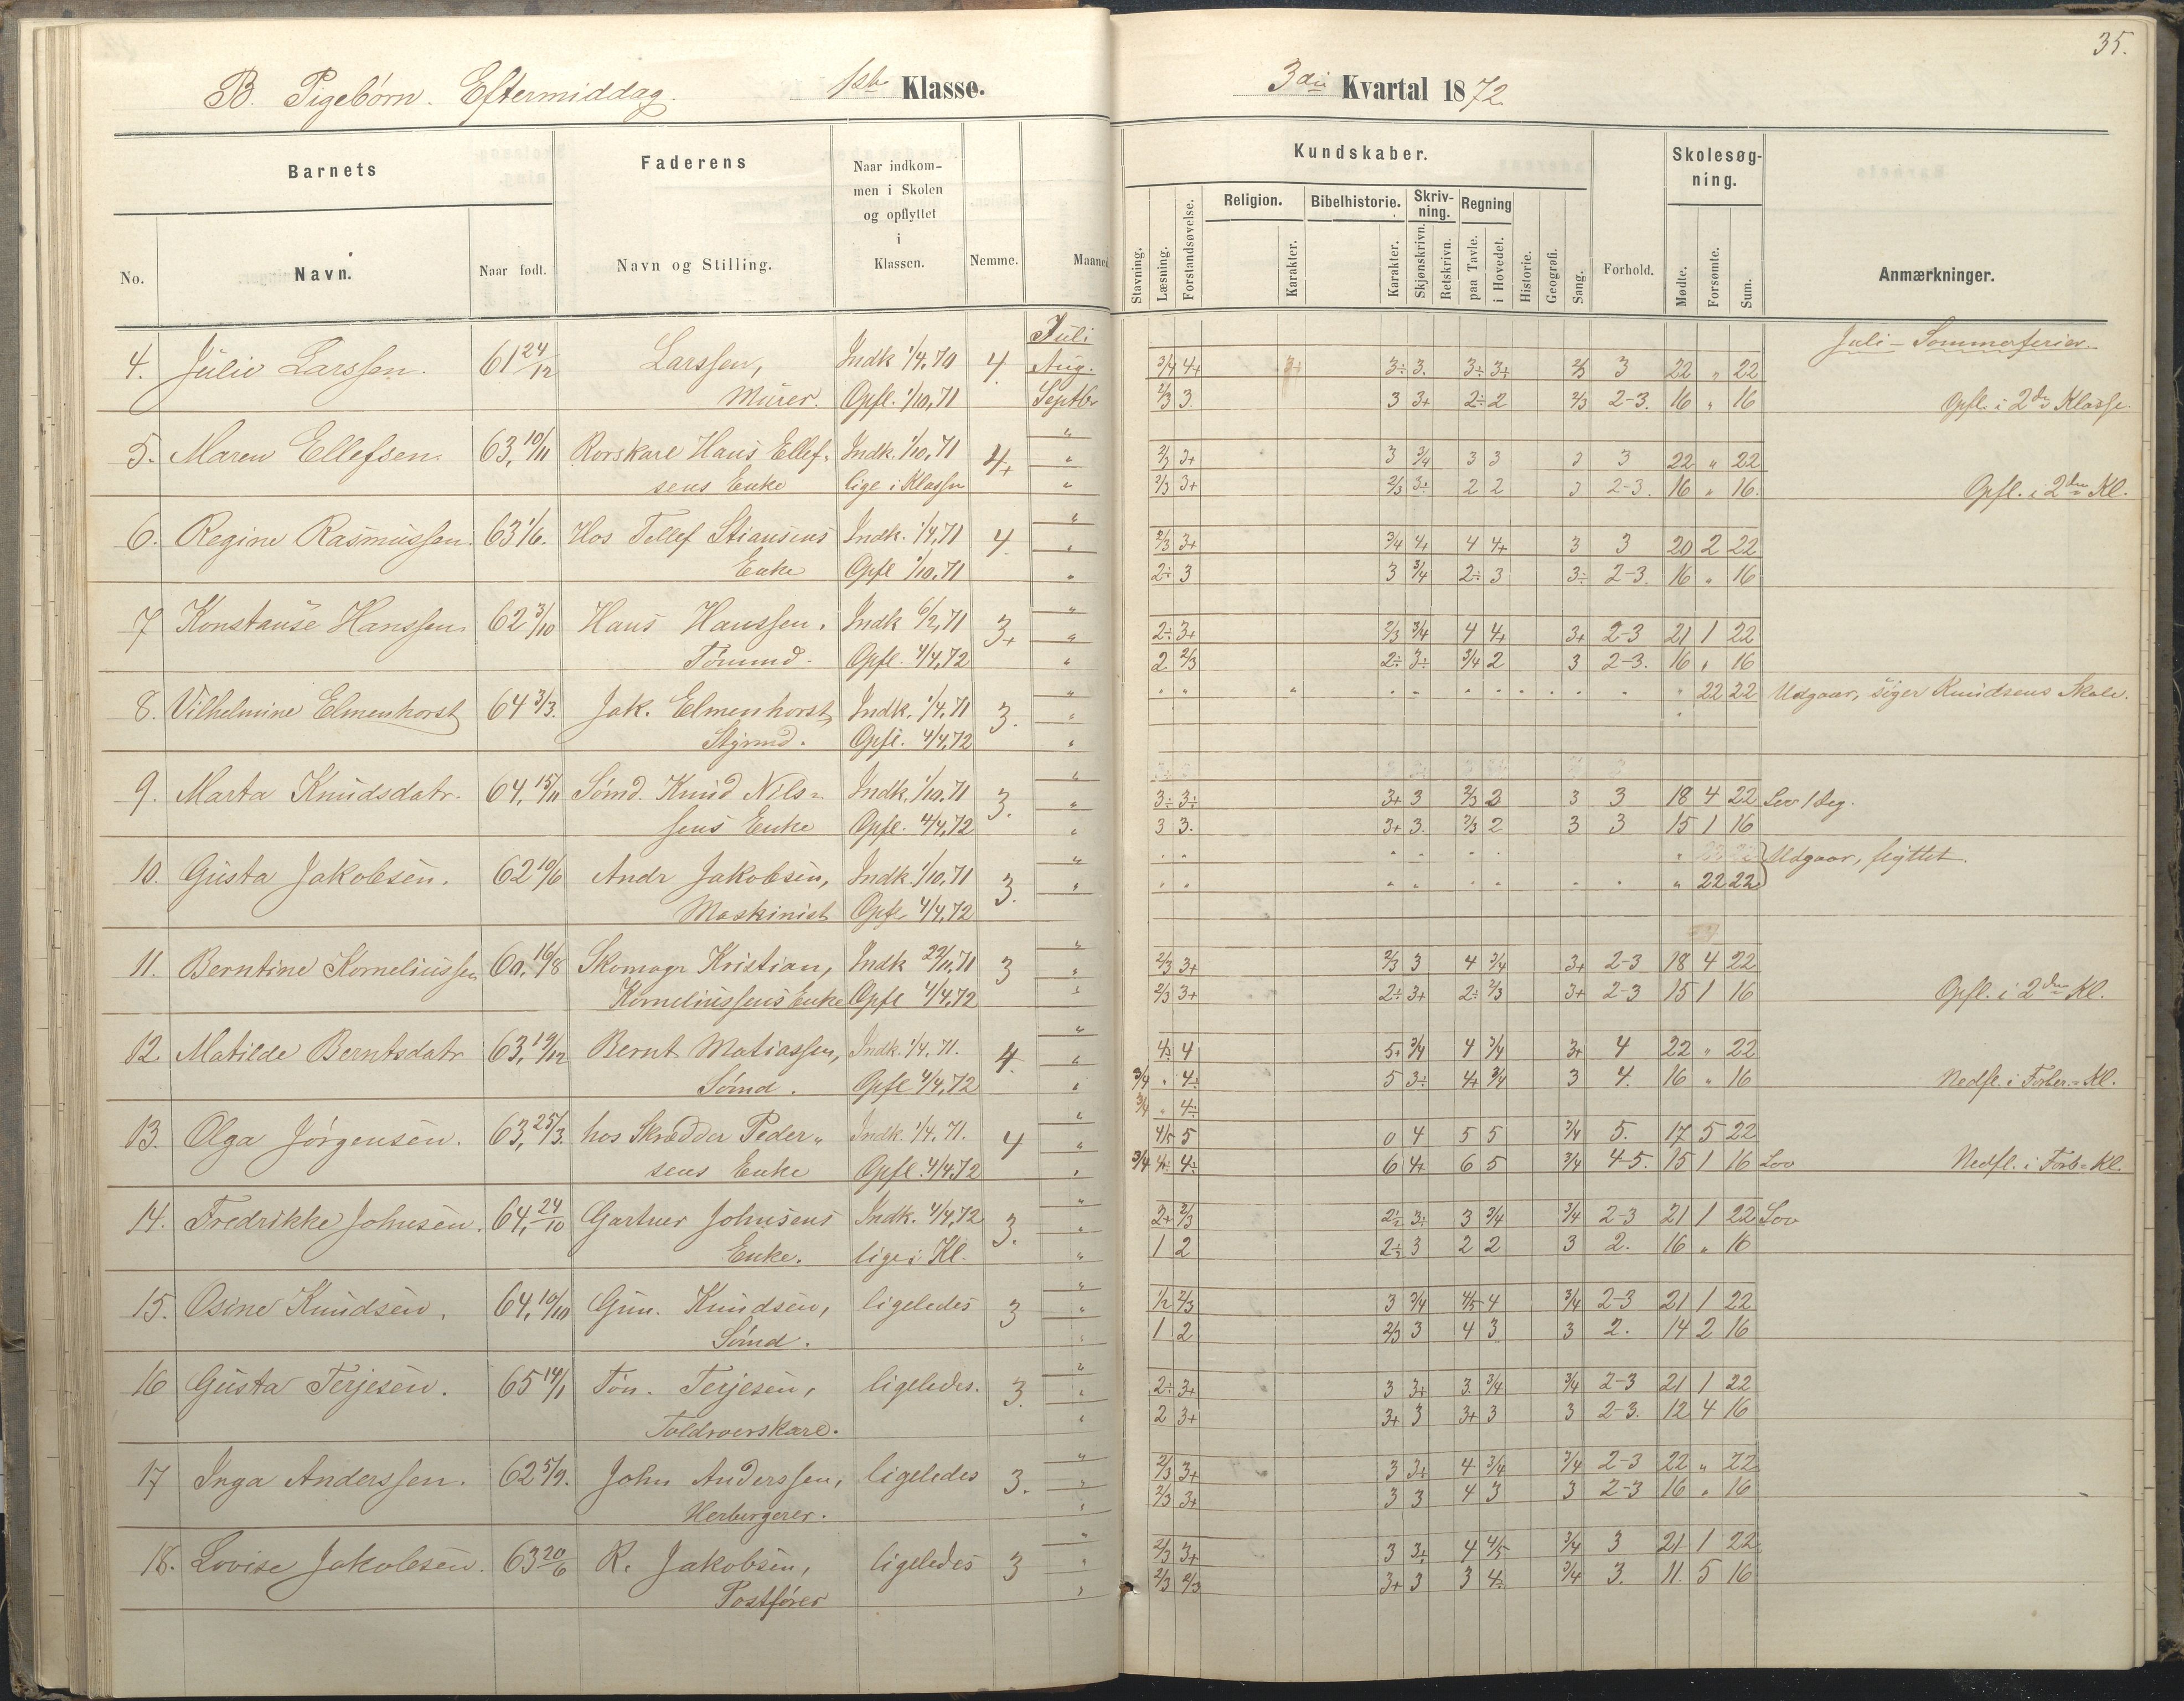 35.
B. Pigebørn. Eftermiddag. 1ste Klasse. 3die Kvartal 1872
Barnets Faderens Naar indkom-
men i Skolen
og opflyttet
i
Klassen. Nemme. Maaned
No. Navn. Naar født. Navn og Stilling.
Kundskaber. Skolesøg-
ning.
Stavning. Læsning. Forstandsøvelse. Religion. Karakter. Bibelhistorie. Karakter. Skriv-
ning. Skjønskrivn. Retskrivn. Regning paa Tavle. i Hovedet. Historie. Geografi. Sang. Forhold. Mødte. Forsømte. Sum. Anmærkninger.
Juli Juli - Sommerferier
4. Julie Larssen. 61 24/12 Larssen, Indk 1/4,70 4. Aug. 3/4 4+ 3÷ 3. 3÷ 3÷ 2/3 3 22 " 22
Murer. Opfl. 1/10,71 Septbr 2/3 3. 3 3+ 2÷ 2 2/3 2-3. 16 " 16 Opfl. i 2den Klasse.
5. Maren Ellefsen. 63, 10/11 Rorskarl Hans Ellef- Indk. 1/10,71 4+ " 2/3 3+ 3 3/4 3 3 3 3 22 " 22
sens Enke lige i Klassen " 2/3 3+ 2/3 3÷ 2 2 3 2-3. 16 " 16. Opfl. i 2den Kl.
6. Regine Rasmussen. 63 1/6. Hos Tellef Stiansens Indk. 1/4,71 4. " 2/3 3+ 3/4 4+ 4 4+ 3 3 20 2 22
Enke Opfl 1/10,71 " 2÷ 3 3 3/4 2÷ 3 3÷ 2-3. 16 " 16
7 Konstanse Hanssen. 62 3/10 Hans Hanssen. Indk 6/2,71 3+ " 2÷ 3+ 2/3 3/4 4 4+ 3+ 2-3 21 1 22
Tømmd. Opfl. 4/4,72 " 2 2/3 2÷ 3÷ 3/4 2 3 2-3. 16 " 16
" 22 22 Udgaar, søger Knudsens Skole.
8. Vilhelmine Elmenhorst 64 3/3. Jak. Elmenhorst, Indk. 1/4,71 3. "
Styrmd. Opfl. 4/4,72 "
9. Marta Knudsdatr. 64, 15/11 Sømd. Knud Nils- Indk. 1/10,71 3. " 3÷ 3÷ 3+ 3 2/3 3 3 3 18 4 22 Lov 1 Seg.
sens Enke Opfl. 4/4,72 " 3 3. 3+ 3. 2/3 2 3 3 15 1 16
Udgaar, flyttet.
10. Gusta Jakobsen. 62 10/6 Andr Jakobsen, Indk. 1/10,71 3. " " 22 22
Maskinist Opfl. 4/4,72
11. Berntine Korneliussen 60, 16/8 Skomagr Kristian, Indk 22/11,71 3 " 2/3 3+ 2/3 3 4 3/4 3+ 2-3 18 4 22
Korneliussens Enke Opfl 4/4,72 " 2/3 3+ 2÷ 3+ 2÷ 2/3 3+ 2-3 15 1 16 Opfl. i 2den Kl.
12. Matilde Berntsdatr 63, 19/12 Bernt Matiassen, Indk. 1/4,71. 4. " 4÷ 4 5+ 3/4 4 3/4 3+ 4 22 " 22
Sømd. Opfl 4/4,72 " 3/4 " 4÷ 5 3÷ 4+ 3/4 3 4. 16 " 16 Nedfl. i Forber.-Kl.
3/4 " 4÷
13. Olga Jørgensen. 63, 25/3. hos Skrædder Peder- Indk. 1/4,71. 4 " 4/5 5 0 4 5 5 3/4 5. 17 5 22
sens Enke Opfl. 4/4,72 " 3/4 4÷ 4÷ 6 4+ 6 5 3/4 4-5. 15 1 16 Lov Nedfl. i Forb-Kl.
14. Fredrikke Johnsen. 64, 24/10 Gartner Johnsens Indk. 4/4,72 3. " 2+ 2/3 2÷ 3÷ 3 3/4 3/4 2-3 21 1 22 Lov
Enke. lige i Kl. " 1 2 2÷ 3 2 2 3 2. 16 " 16
15. Osine Knudsen. 64, 10/10 Gun. Knudsen, ligeledes 3 " 1/2 2/3 3 3/4 4/5 4 3/4 2-3 21 1 22
Sømd. " 1 2 2/3 3 4 3 3 2. 14 2 16
16 Gusta Terjesen. 65 14/1 Tøn. Terjesen, ligeledes. 3. " 2÷ 3+ 3 3+ 3. 3/4 3/4 2-3 21 1 22
Toldroerskarl. " 2 3+ 3+ 3 3+ 3 3 2-3. 12 4 16
17 Inga Anderssen. 62 5/9. John Anderssen, ligeledes 3. " 2/3 3+ 3 3+ 4 3/4 3/4 2-3 22 " 22
Herbergerer. " 2/3 3+ 3 3 4 3 3 2-3 16 " 16
18. Lovise Jakobsen. 63 20/6 R. Jakobsen, ligeledes 3 " 2/3 3+ 3 3+ 4 4/5 3/4 3 21 1 22
Postfører " 2/3 2/3 3+ 3 3 4. 3/4 3. 11. 5 16